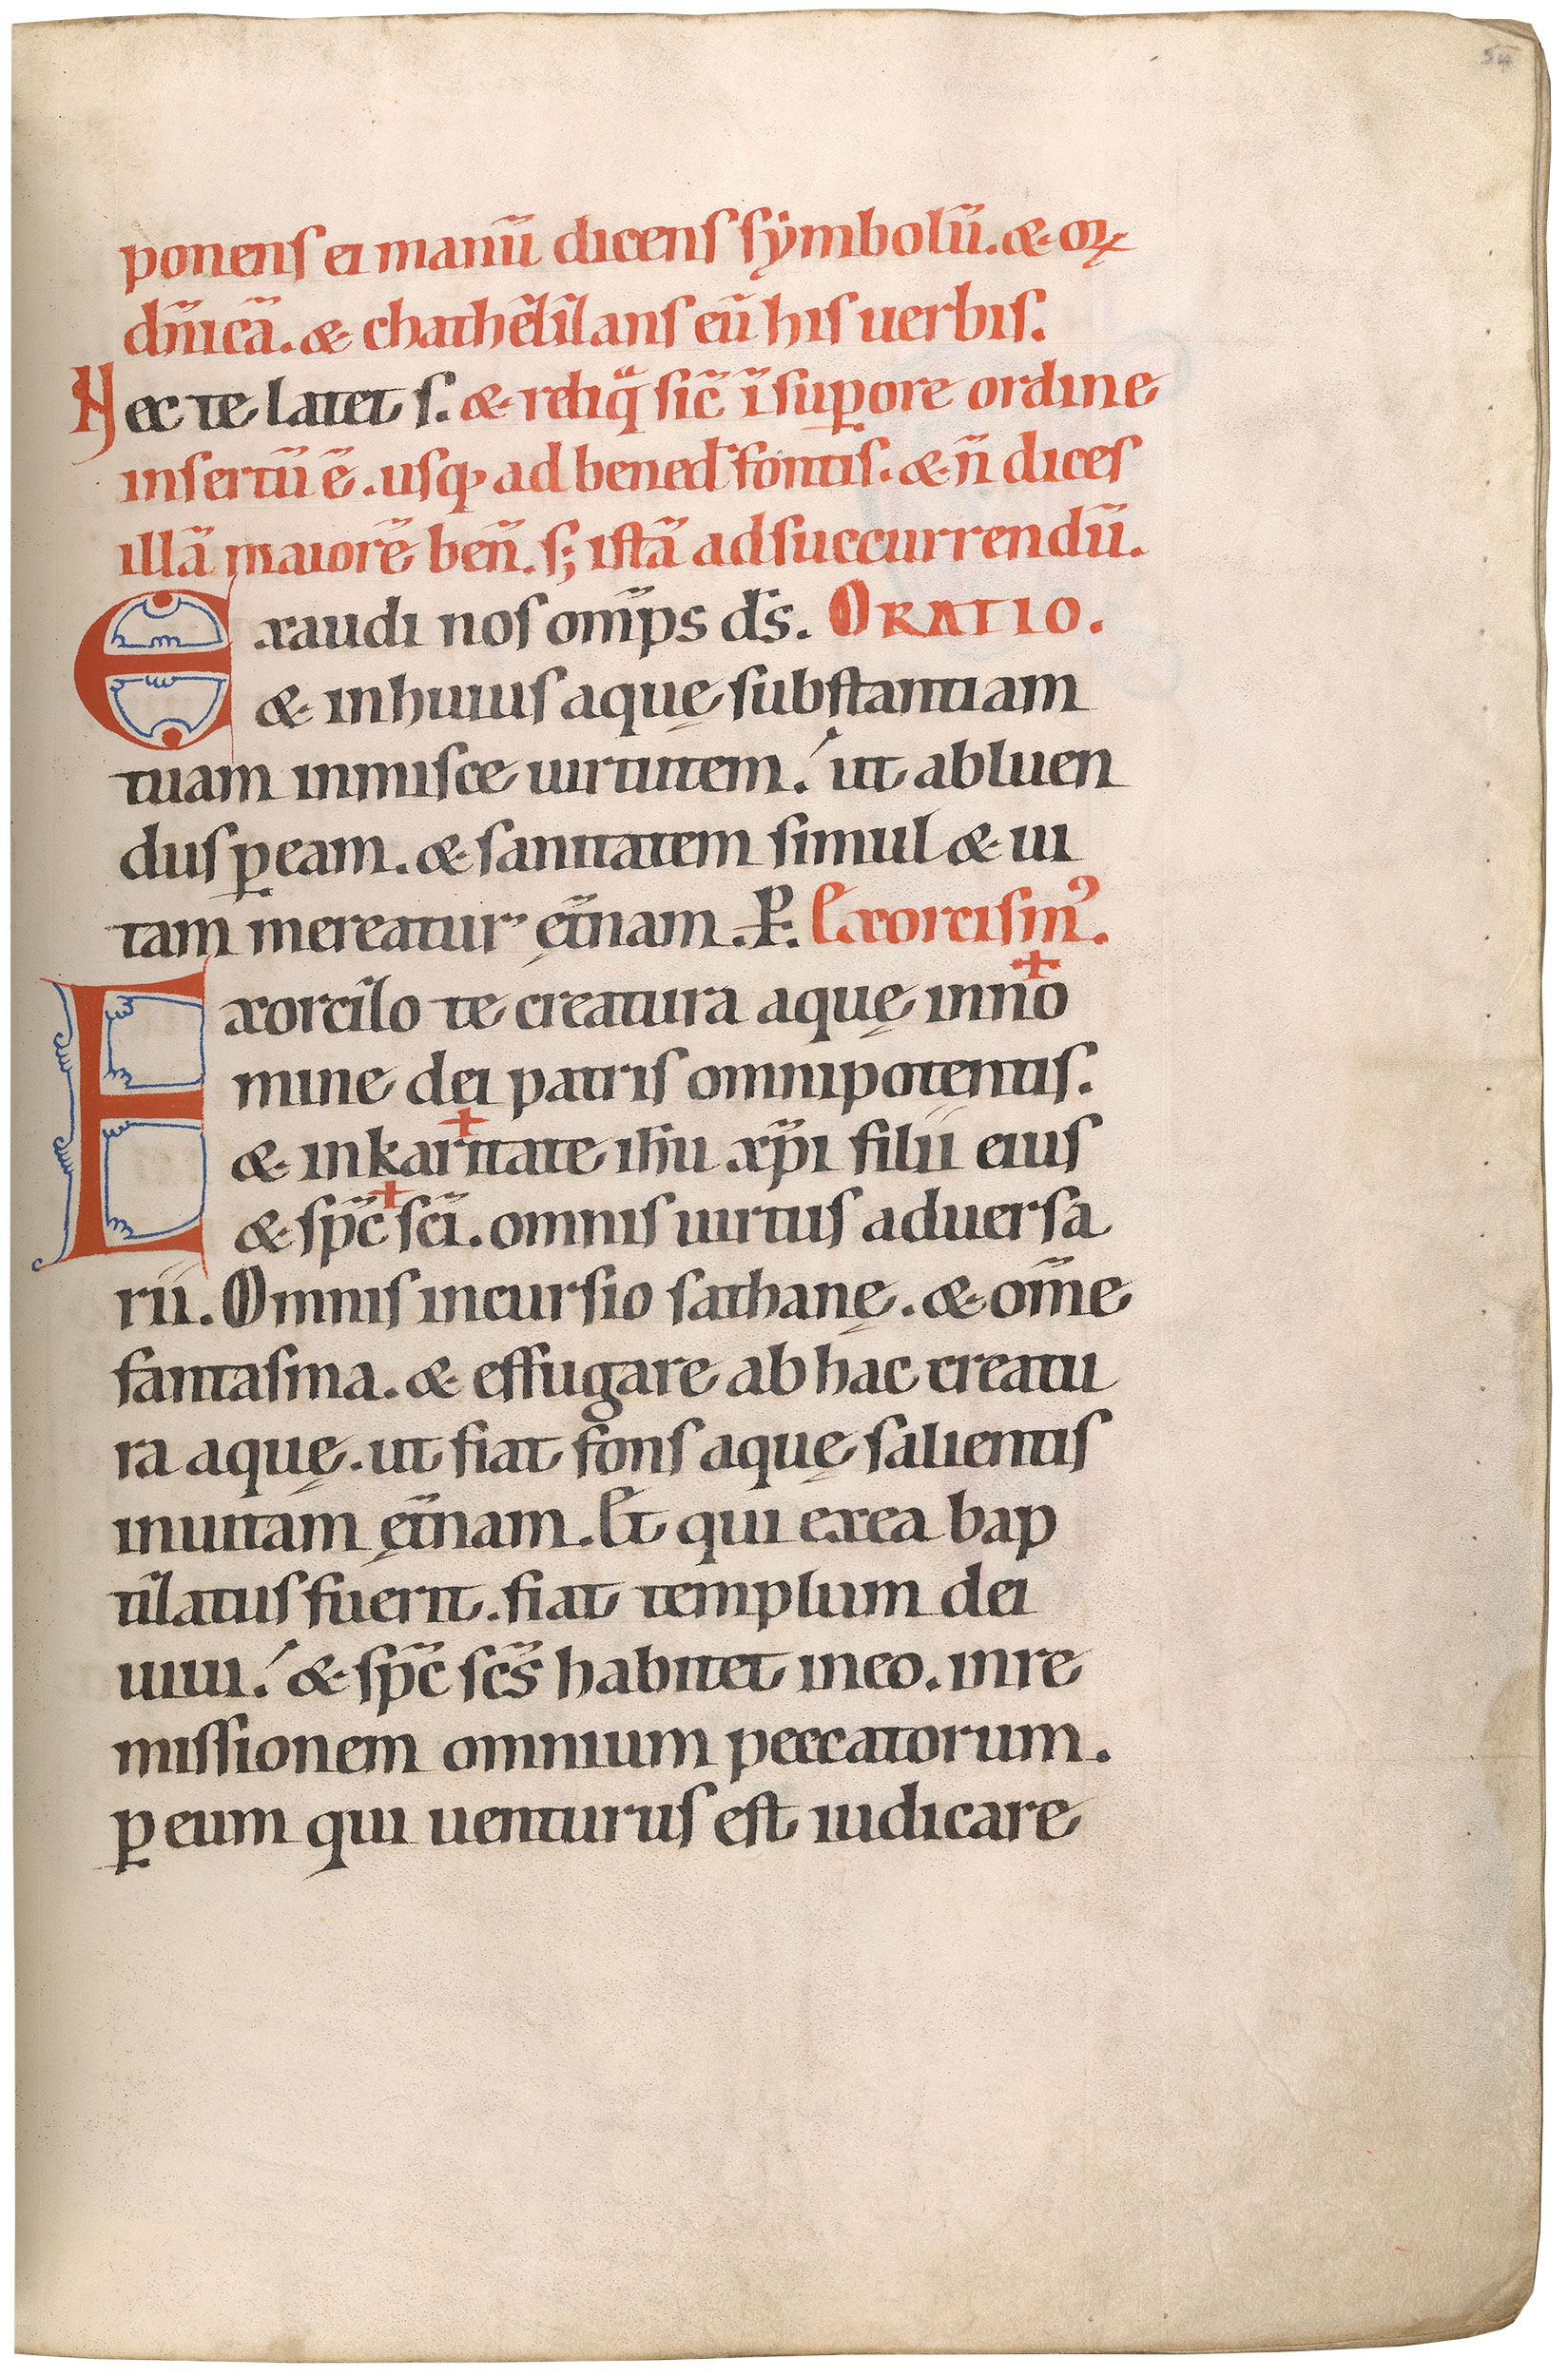 54
ponens ei manū dicens sẏmbolū. & or̄
dn̄icā. & chathēlīzans eū his uerbis.
Nec te latet s. & reliq̄ sic̄ ī sup̱ore ordine
insertū ē. usq; ad bened̄ fontis. & n̄ dices
illā maiorē ben̄. s; istā ad succurrendū.
Exaudi nos om̄ps ds̄. ORATIO.
& in huius aquę substantiam
tuam inmisce uirtutem. ut abluen
dus p̱ eam. & sanitatem simul & ui
tam mereatur ęt̄nam. P̱. Exorcism᾽.
Exorcizo te creatura aquę in no
mine dei patris omnipotentis.
& in karitate ih̄u xp̄i filii eius
& sp̄c sc̄i. omnis uirtus aduersa
rii. Omnis incursio sathanę. & om̄e
fantasma. & effugare ab hac creatu
ra aquę. ut fiat fons aquę salientis
in uitam ęt̄nam. Et qui ex ea bap
tizatus fuerit. fiat templum dei
uiui. & sp̄c sc̄s habitet in eo. in re
missionem omnium peccatorum.
p̱ eum qui uenturus est iudicare